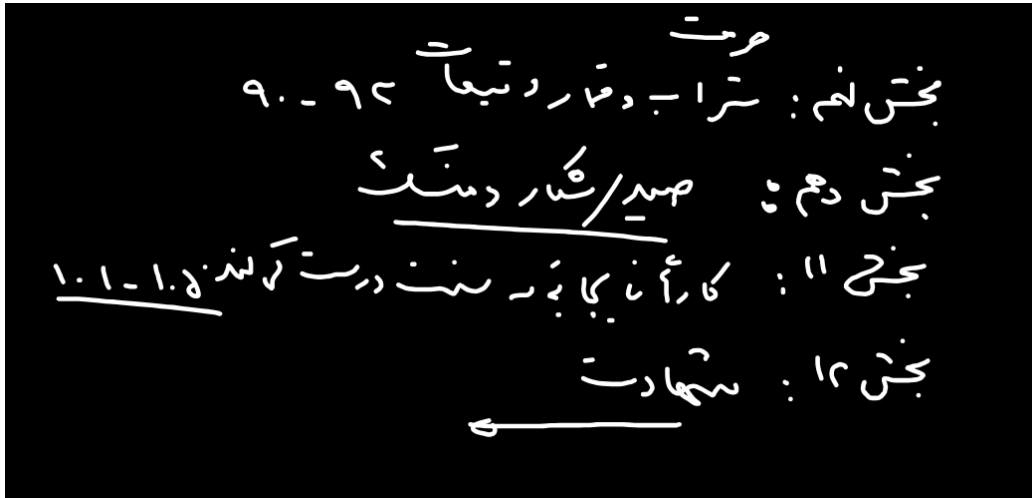 حرمت
بخش نهم : شراب و قمار و تبعات ۹۲ - ۹۰
بخش دهم : صید/شکار و مناسک
بخش ۱۱ : کار سنت درست کردند ۱۰۵ - ۱۰۱
بخش ۱۲ : شهادت